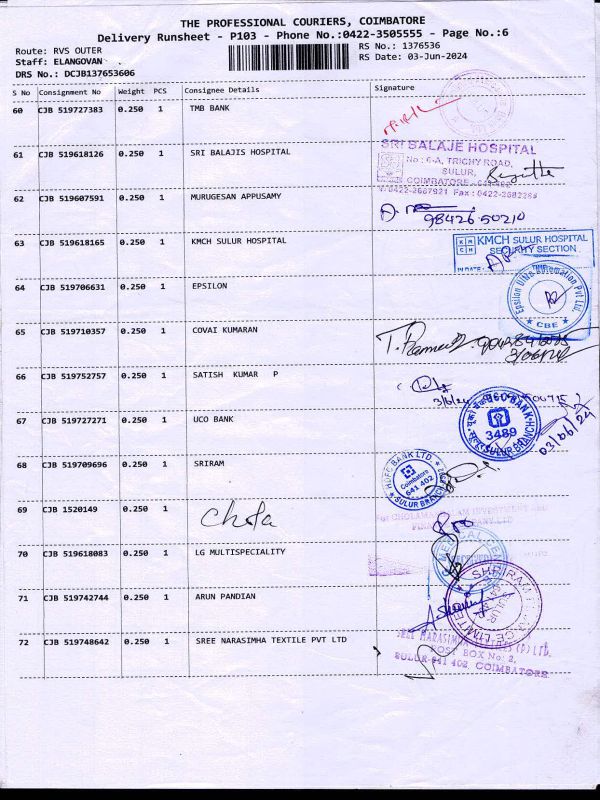 THE PROFESSIONAL COURIERS, COIMBATORE
Delivery Runsheet - P103 - Phone No.:0422-3505555 - Page No.:6
Route: RVS OUTER
RS No.: 1376536
Staff: ELANGOVAN
RS Date: 03-Jun-2024
DRS No.: DCJB137653606
S No Consignment No Weight PCS Consignee Details Signature
60 CJB 519727383 0.250 1 TMB BANK
61 CJB 519618126 0.250 1 SRI BALAJIS HOSPITAL
SRI BALAJE HOSPITAL
No : 6-A, TRICHY ROAD,
SULUR,
COIMBATORE
62 CJB 519607591 0.250 1 MURUGESAN APPUSAMY
98426 50210
63 CJB 519618165 0.250 1 KMCH SULUR HOSPITAL
KMCH SULUR HOSPITAL
SECURITY SECTION
64 CJB 519706631 0.250 1 EPSILON
CBE
65 CJB 519710357 0.250 1 COVAI KUMARAN
66 CJB 519752757 0.250 1 SATISH KUMAR P
3/6/24
67 CJB 519727271 0.250 1 UCO BANK
UCO BANK
3489
SULUR BRANCH
03/06/24
68 CJB 519709696 0.250 1 SRIRAM
HDFC BANK LTD
Coimbatore
641 402
SULUR BRANCH
69 CJB 1520149 0.250 1 Chola
70 CJB 519618083 0.250 1 LG MULTISPECIALITY
71 CJB 519742744 0.250 1 ARUN PANDIAN
72 CJB 519748642 0.250 1 SREE NARASIMHA TEXTILE PVT LTD
POST BOX No: 2,
SULUR-641 402, COIMBATORE